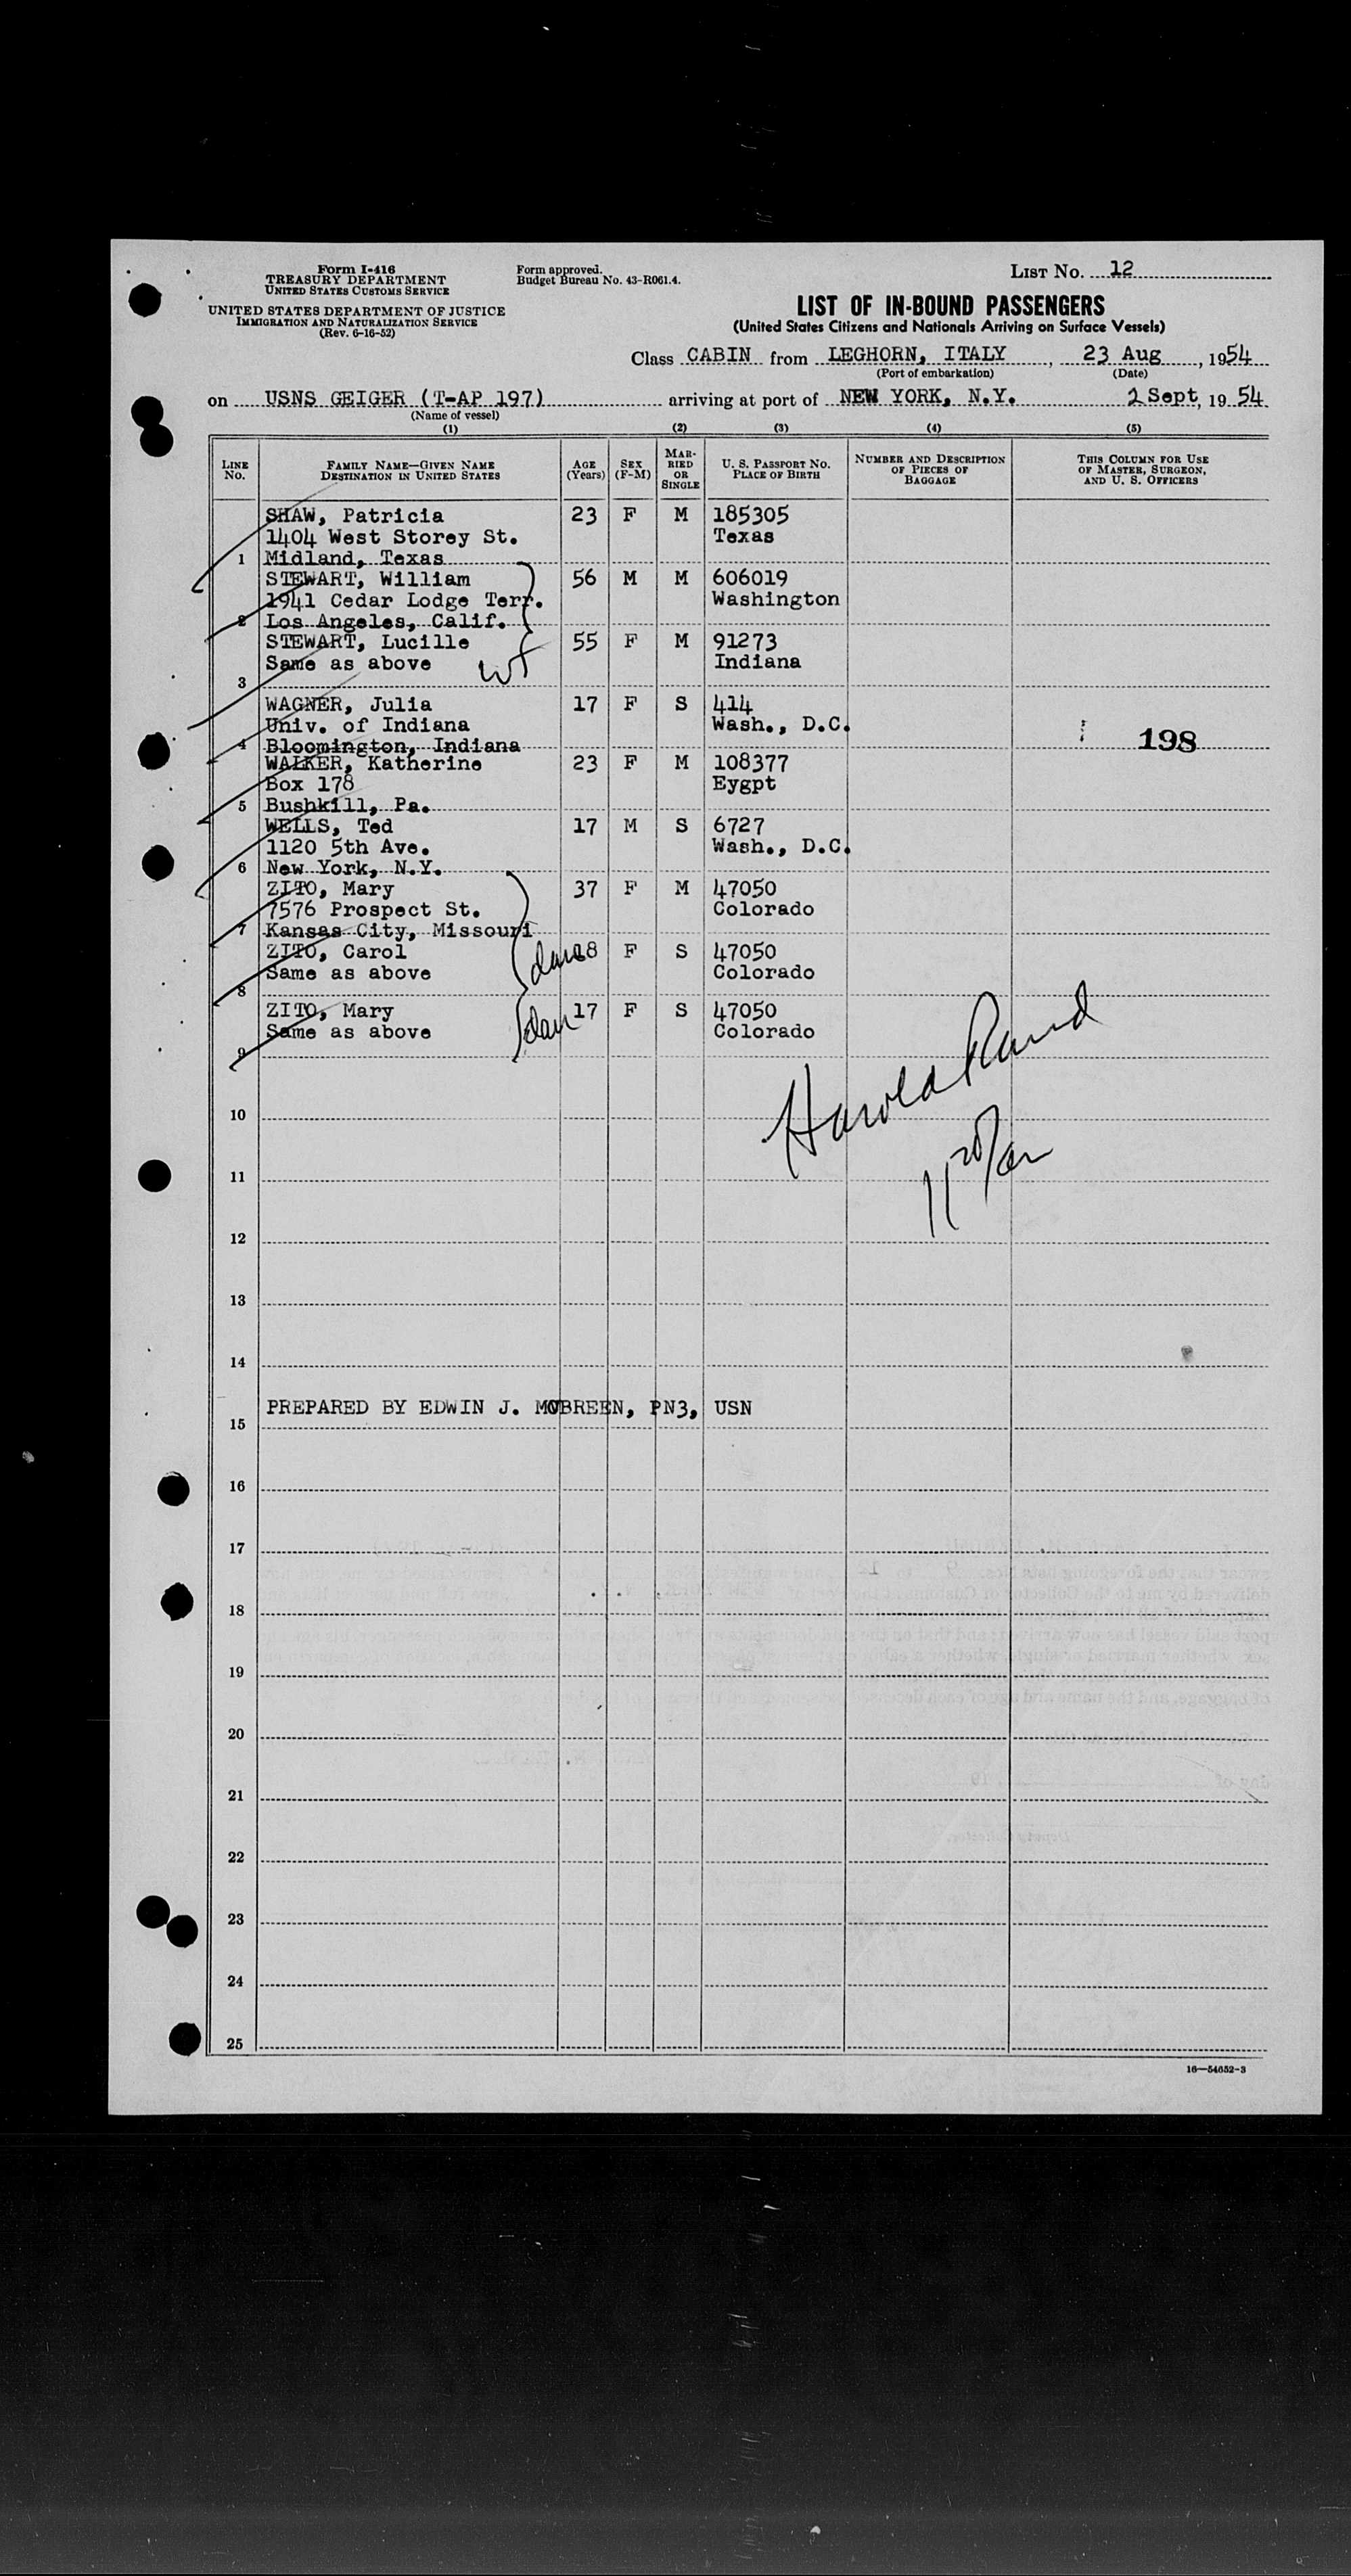 Form I-416
TREASURY DEPARTMENT
UNITED STATES CUSTOMS SERVICE
UNITED STATES DEPARTMENT OF JUSTICE
IMMIGRATION AND NATURALIZATION SERVICE
(Rev. 6-16-52)
Form approved.
Budget Bureau No. 43-R061.4.
LIST NO. 12
LIST OF IN-BOUND PASSENGERS
(United States Citizens and Nationals Arriving on Surface Vessels)
Class CABIN from LEGHORN, ITALY, 23 Aug, 1954
(Port of embarkation) (Date)
on USNS GEIGER (T-AP 197) arriving at port of NEW YORK, N.Y. 2 Sept, 19 54
(Name of vessel)
(1) (2) (3) (4) (5)
LINE NO. FAMILY NAME—GIVEN NAME DESTINATION IN UNITED STATES AGE (Years) SEX (F-M) MARRIED OR SINGLE U. S. PASSPORT NO. PLACE OF BIRTH NUMBER AND DESCRIPTION OF PIECES OF BAGGAGE THIS COLUMN FOR USE OF MASTER, SURGEON, AND U. S. OFFICERS
SHAW, Patricia 23 F M 185305
1404 West Storey St. Texas
1 Midland, Texas
STEWART, William 56 M M 606019
1941 Cedar Lodge Terr. Washington
2 Los Angeles, Calif.
STEWART, Lucille 55 F M 91273
Same as above wf Indiana
3
WAGNER, Julia 17 F S 414
Univ. of Indiana Wash., D.C.
4 Bloomington, Indiana 198
WALKER, Katherine 23 F M 108377
Box 178 Eygpt
5 Bushkill, Pa.
WELLS, Ted 17 M S 6727
1120 5th Ave. Wash., D.C.
6 New York, N.Y.
ZITO, Mary 37 F M 47050
7576 Prospect St. Colorado
7 Kansas City, Missouri
ZITO, Carol dau 8 F S 47050
Same as above Colorado
8
ZITO, Mary dau 17 F S 47050
Same as above Colorado
9
Harold Rand
10
11
12
13
14
PREPARED BY EDWIN J. MCBREEN, PN3, USN
15
16
17
18
19
20
21
22
23
24
25
16—54652-3